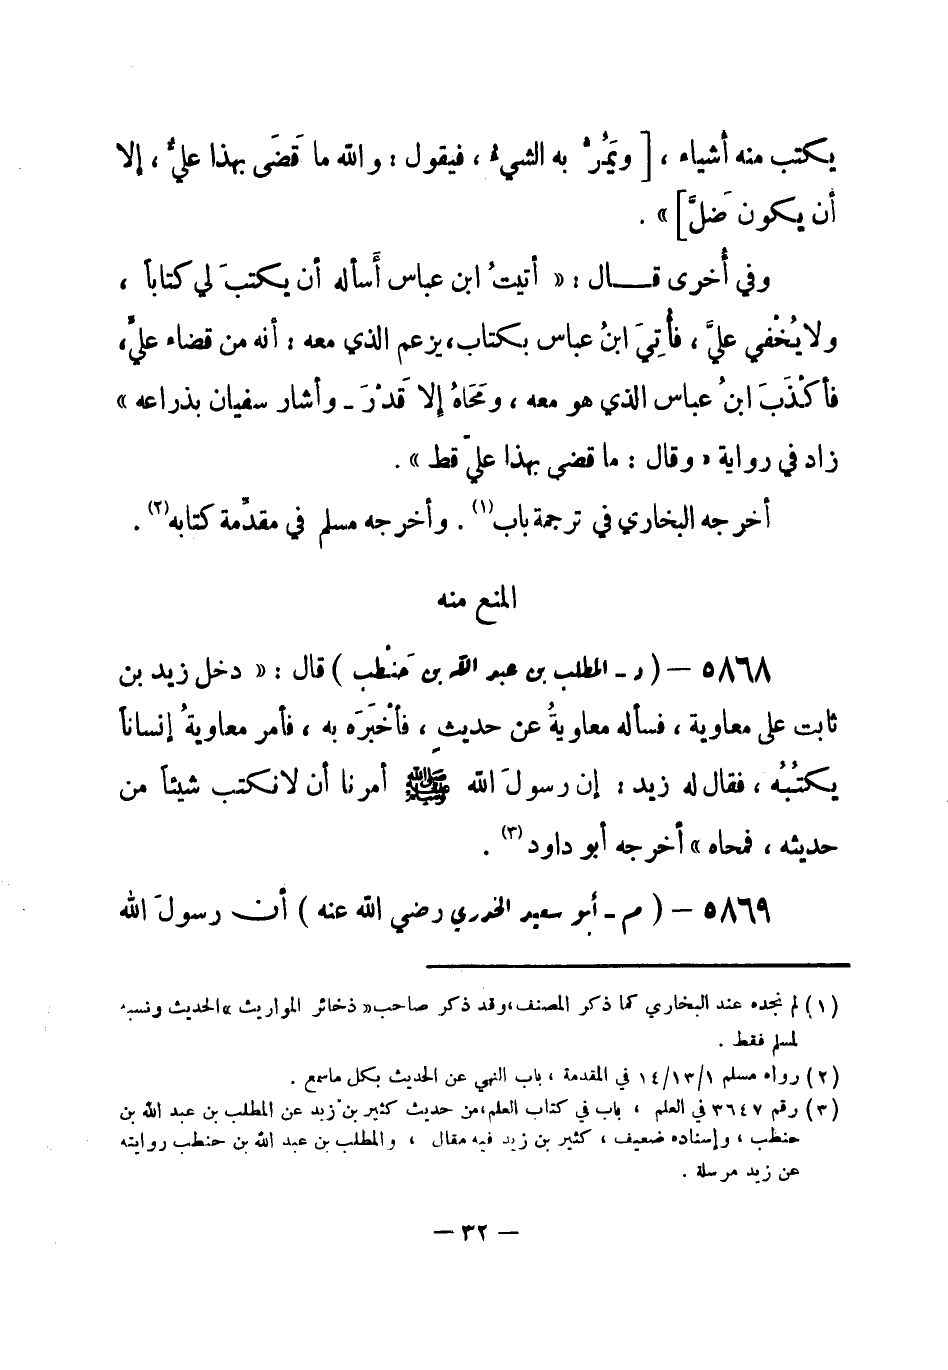 يكتب منه أشياء ، [ ويَمُرُّ به الشيءُ ، فيقول : والله ما قَضَى بهذا عليٌّ ، إلا
أن يكون ضَلَّ ] » .
وفي أُخرى قـــال : « أتيتُ ابن عباس أسأله أن يكتبَ لي كتاباً ،
ولا يُخْفي عليَّ ، فأُتِيَ ابنُ عباس بكتاب، يزعم الذي معه : أنه من قضاء عليٍّ،
فأكْذَبَ ابنُ عباس الذي هو معه ، ومَحَاهُ إلا قَدْرَ ـ وأشار سفيان بذراعه »
زاد في رواية « وقال : ما قضى بهذا عليّ قط » .
أخرجه البخاري في ترجمة باب (١) . وأخرجه مسلم في مقدّمة كتابه (٢) .
المنع منه
٥٨٦٨ – ( د ـ المطلب بن عبد الله بن حَنْطَب ) قال : « دخل زيد بن
ثابت على معاوية ، فسأله معاويةُ عن حديثٍ ، فأخْبَرَه به ، فأمر معاويةُ إنساناً
يكتُبُه ، فقال له زيد : إن رسولَ الله ﷺ أمرنا أن لا نكتب شيئاً من
حديثه ، فمحاه » أخرجه أبو داود (٣) .
٥٨٦٩ – ( م ـ أبو سعيد الخدري رضي الله عنه ) أن رسولَ الله
(١) لم نجده عند البخاري كما ذكر المصنف ، وقد ذكر صاحب « ذخائر المواريث » الحديث ونسبه
لمسلم فقط .
(٢) رواه مسلم ١٣/١ / ١٤ في المقدمة ، باب النهي عن الحديث بكل ما سمع .
(٣) رقم ٣٦٤٧ في العلم ، باب في كتاب العلم ، من حديث كثير بن زيد عن المطلب بن عبد الله بن
حنطب ، وإسناده ضعيف ، كثير بن زيد فيه مقال ، والمطلب بن عبد الله بن حنطب روايته
عن زيد مرسلة .
– ٣٢ –